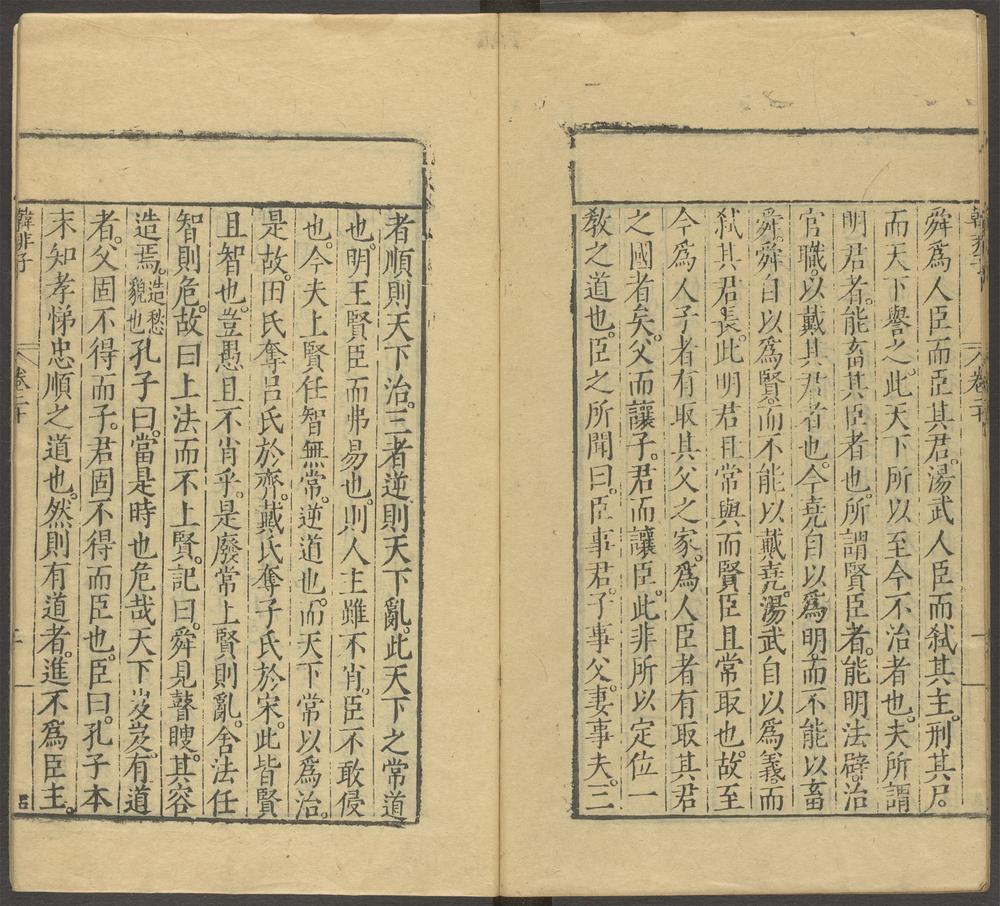 舜爲人臣而臣其君。湯武人臣而弑其主。刑其尸。
而天下譽之。此天下所以至今不治者也。夫所謂
明君者。能畜其臣者也。所謂賢臣者。能明法辟。治
官職。以戴其君者也。今堯自以爲明。而不能以畜
舜。舜自以爲賢。而不能以戴堯。湯武自以爲義。而
弑其君長。此明君且常與而賢臣且常取也。故至
今爲人子者有取其父之家。爲人臣者有取其君
之國者矣。父而讓子。君而讓臣。此非所以定位一
教之道也。臣之所聞曰。臣事君。子事父。妻事夫。三
者順則天下治。三者逆則天下亂。此天下之常道
也。明王賢臣而弗易也。則人主雖不肖。臣不敢侵
也。今夫上賢任智無常。逆道也。而天下常以爲治。
是故。田氏奪呂氏於齊。戴氏奪子氏於宋。此皆賢
且智也。豈愚且不肖乎。是廢常上賢則亂。舍法任
智則危。故曰上法而不上賢。記曰。舜見瞽瞍。其容
造焉。造愁貌也孔子曰。當是時也危哉天下岌岌。有道
者。父固不得而子。君固不得而臣也。臣曰。孔子本
末知孝悌忠順之道也。然則有道者。進不爲臣主。
韓非子 卷二十